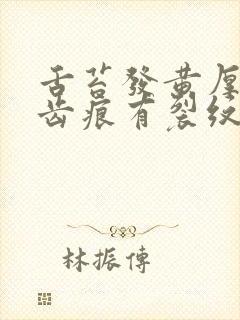 舌苔發黃厚
齒痕有裂紋
林振傳